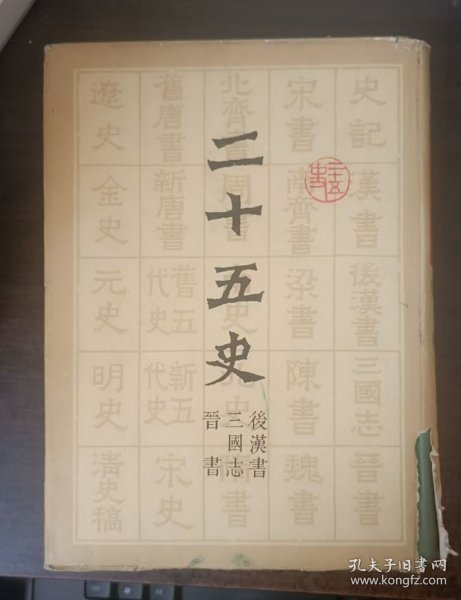 二十五史
後漢書
三國志
晉書
二十五史
史記
漢書
後漢書
三國志
晉書
宋書
南齊書
梁書
陳書
魏書
北齊書
周書
史
史
書
舊唐書
新唐書
舊五代史
新五代史
宋史
遼史
金史
元史
明史
清史稿
孔夫子旧书网
www.kongfz.com